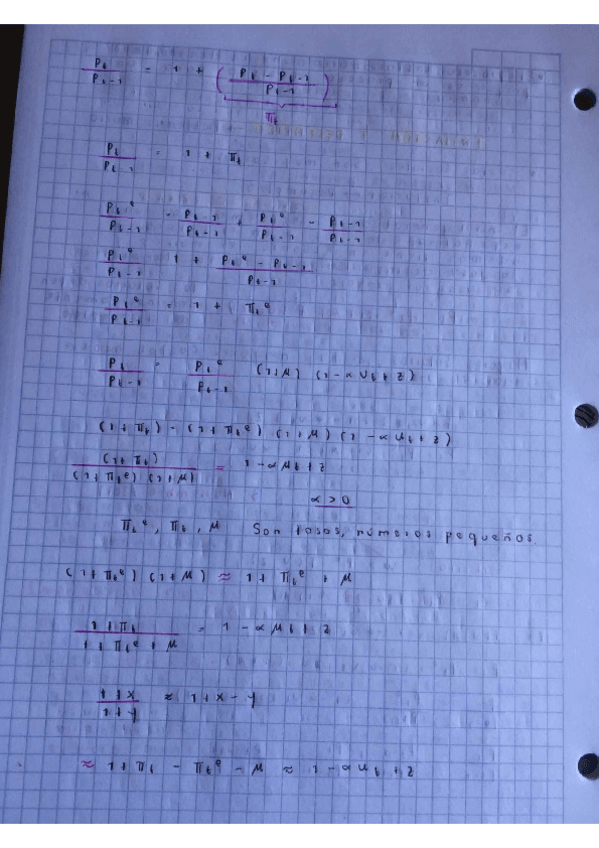 Pt / Pt-1 = 1 + ( Pt - Pt-1 / Pt-1 )
πt
Pt / Pt-1 = 1 + πt
Pt^e / Pt-1 = Pt-1 / Pt-1 + Pt^e / Pt-1 - Pt-1 / Pt-1
Pt^e / Pt-1 1 + Pt^e - Pt-1 / Pt-1
Pt^e / Pt-1 = 1 + πt^e
Pt / Pt-1 = Pt^e / Pt-1 (1+μ) (1-αut+z)
(1+πt) = (1+πt^e) (1+μ) (1-αut+z)
(1+πt) / (1+πt^e) (1+μ) = 1-αμt+z
α>0
πt^e, πt, μ Son tasas, números pequeños.
(1+πt^e) (1+μ) ≈ 1+πt^e + μ
1+πt / 1+πt^e+μ = 1-αμt+z
1+x / 1+y ≈ 1+x-y
≈ 1+πt - πt^e - μ ≈ 1-αut+z